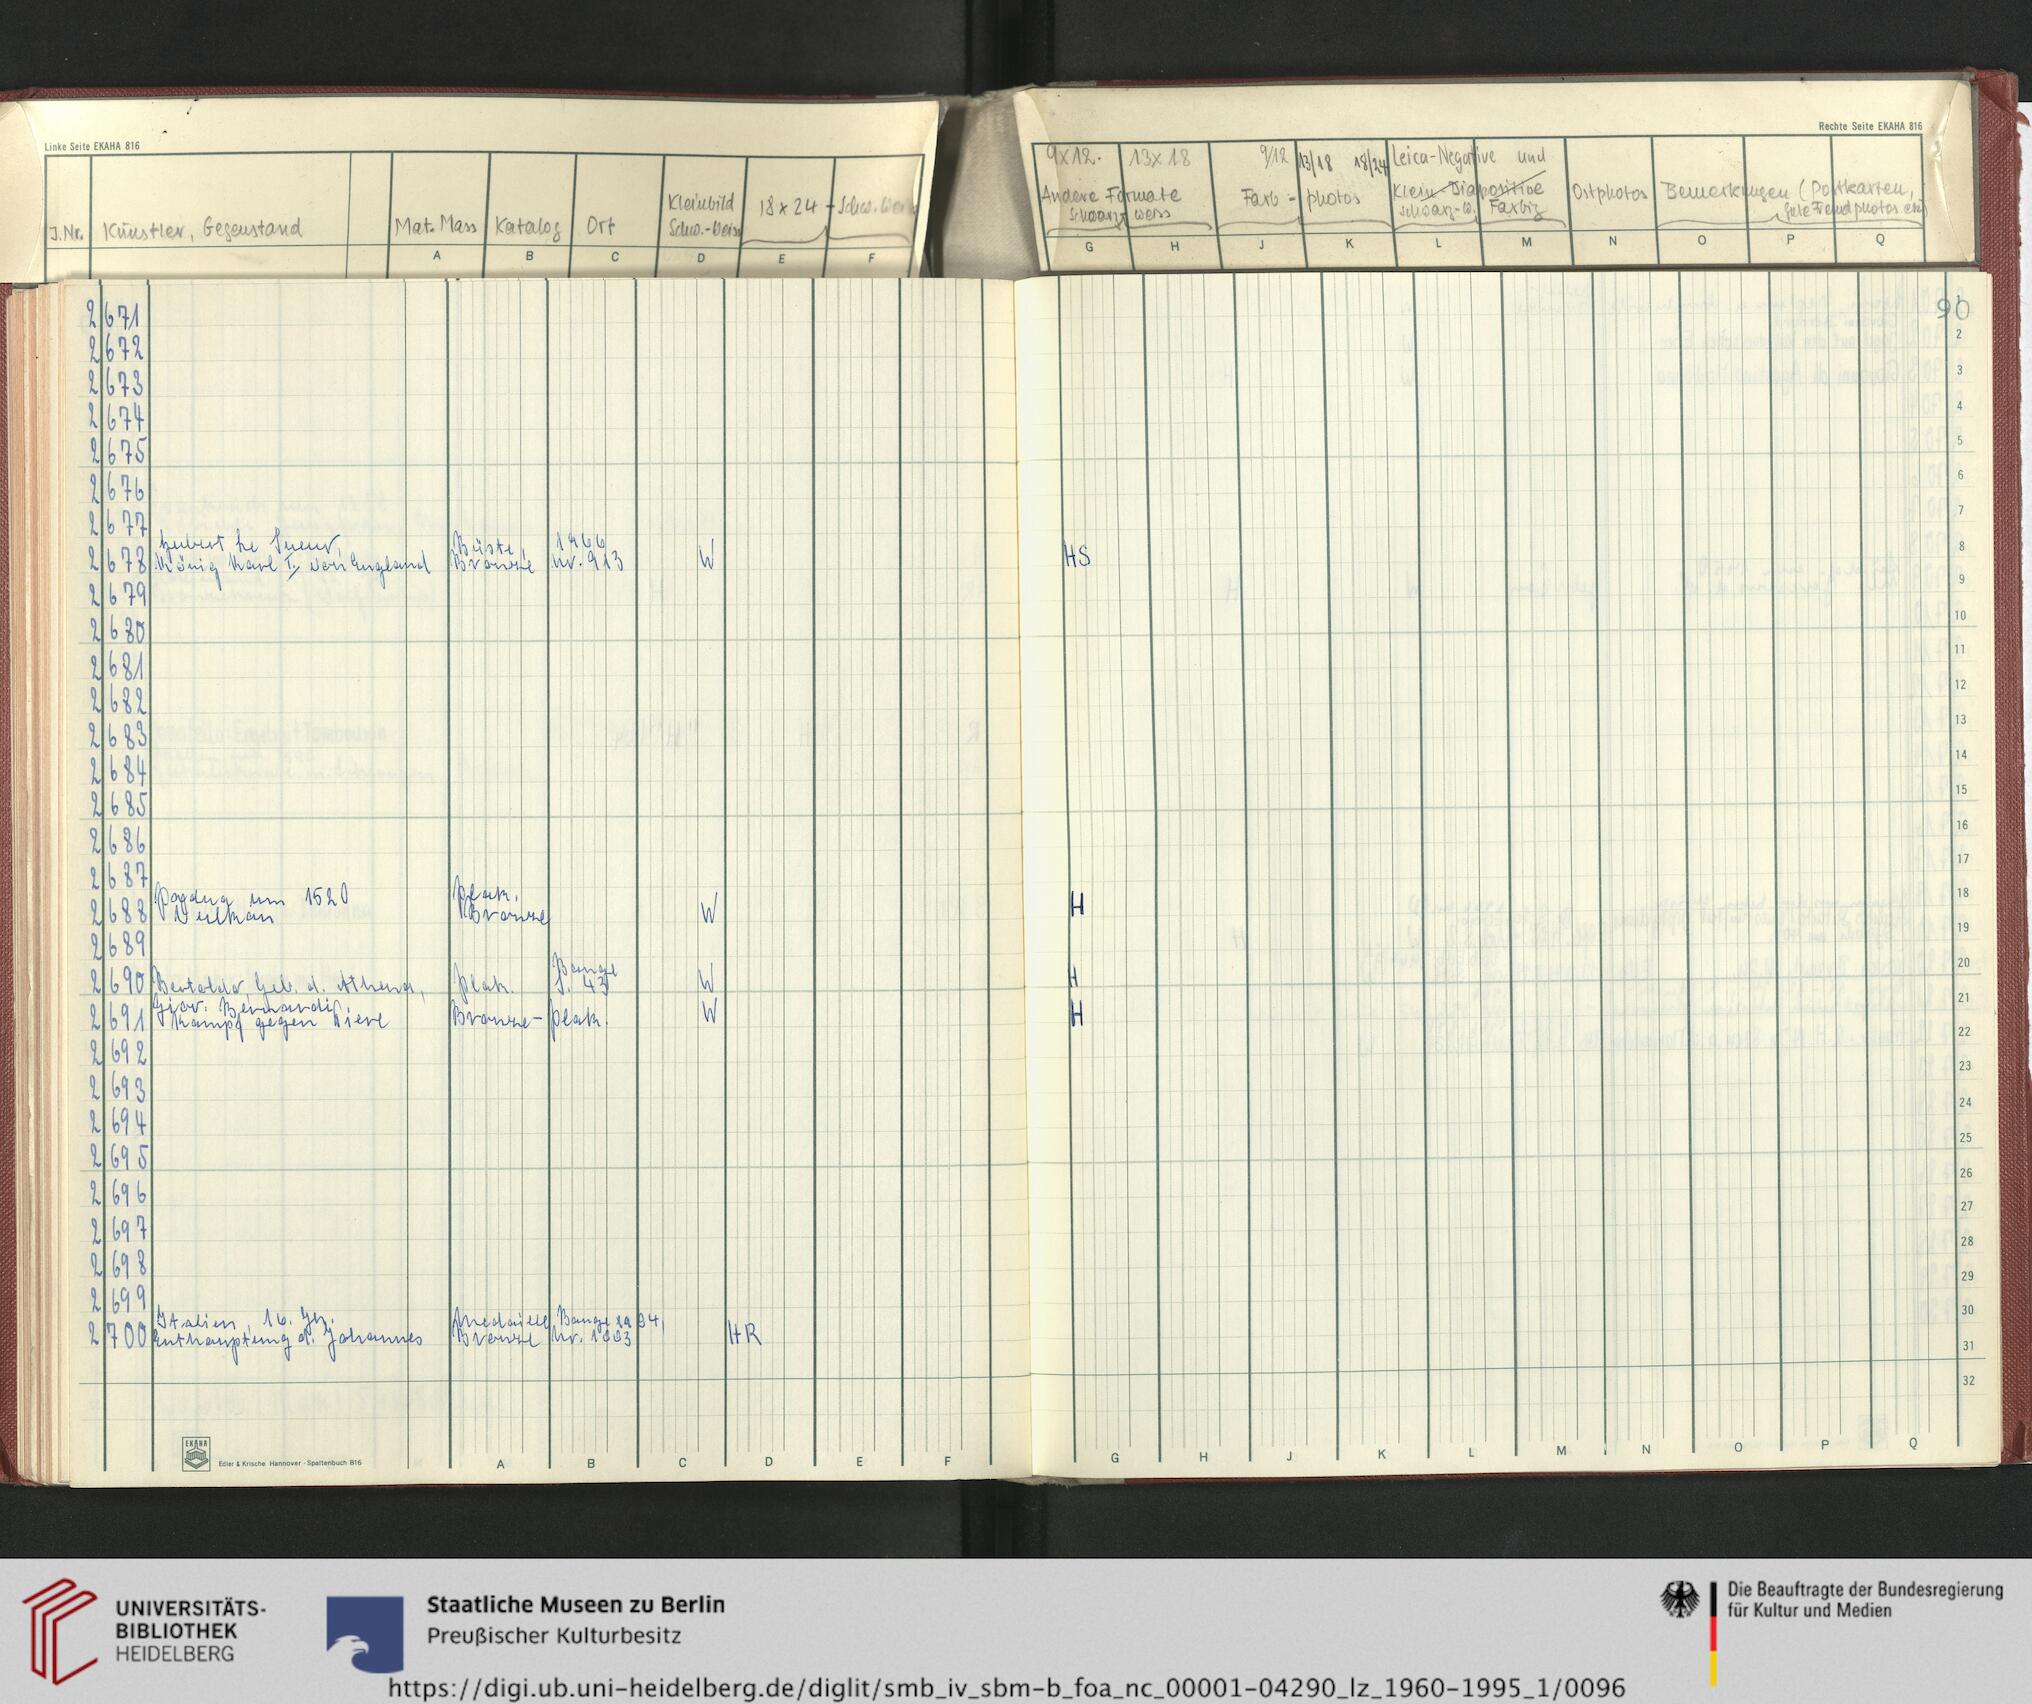 Linke Seite EKAHA 816
J.Nr. Künstler, Gegenstand Mat. Mass Katalog Ort Kleinbild Schw.-Weiss 18 x 24 - Schw. Weiss
A B C D E F
Rechte Seite EKAHA 816
9x12. 13x18 9/12 13/18 18/24 Leica-Negative und
Andere Formate Farb - photos Klein-Diapositive Ostphotos Bemerkungen (Postkarten,
Schwarz weiss schwarz-w. Farbig gute Fremdphotos etc)
G H J K L M N O P Q
90
2671
2672
2673
2674
2675
2676
2677
Hubert Le Sueur, Büste, 1966
2678 König Karl I. von England Bronze Nr. 913 W HS
2679
2680
2681
2682
2683
2684
2685
2686
2687
Padua um 1520 Plak.
2688 Vulkan Bronze W H
2689
Bange
2690 Bertoldo, Geb. d. Athena, Plak. S. 43 W H
Giov. Bernardi,
2691 Kampf gegen Tiere Bronze-Plak. W H
2692
2693
2694
2695
2696
2697
2698
2699
Italien, 16. Jh. Medaille Bange
2700 Enthauptung d. Johannes Bronze HR
2
3
4
5
6
7
8
9
10
11
12
13
14
15
16
17
18
19
20
21
22
23
24
25
26
27
28
29
30
31
32
EKAHA
Edler & Krische Hannover · Spaltenbuch 816
A B C D E F
G H J K L M N O P Q
UNIVERSITÄTS-
BIBLIOTHEK
HEIDELBERG
Staatliche Museen zu Berlin
Preußischer Kulturbesitz
Die Beauftragte der Bundesregierung
für Kultur und Medien
https://digi.ub.uni-heidelberg.de/diglit/smb_iv_sbm-b_foa_nc_00001-04290_lz_1960-1995_1/0096